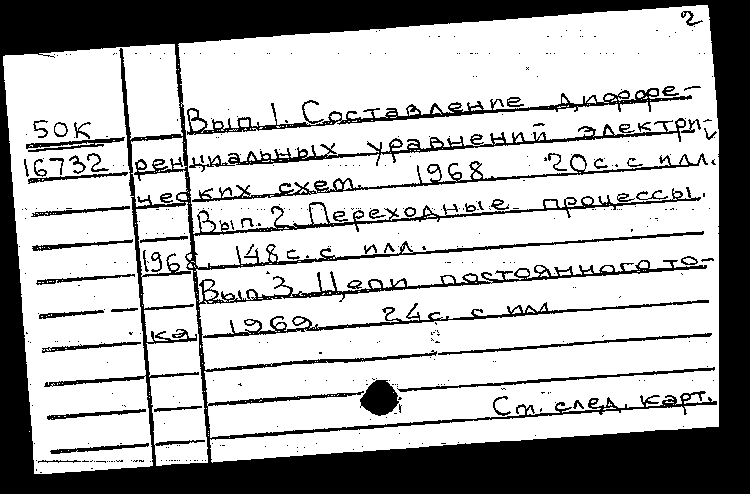 2
Вып. 1. Составление диффе-
50К
16732
ренциальных уравнений электри-
ческих схем. 1968. 20 с. с илл.
Вып. 2. Переходные процессы.
1968. 148 с. с илл.
Вып. 3. Цепи постоянного то-
ка. 1969. 24 с. с илл.
См. след. карт.